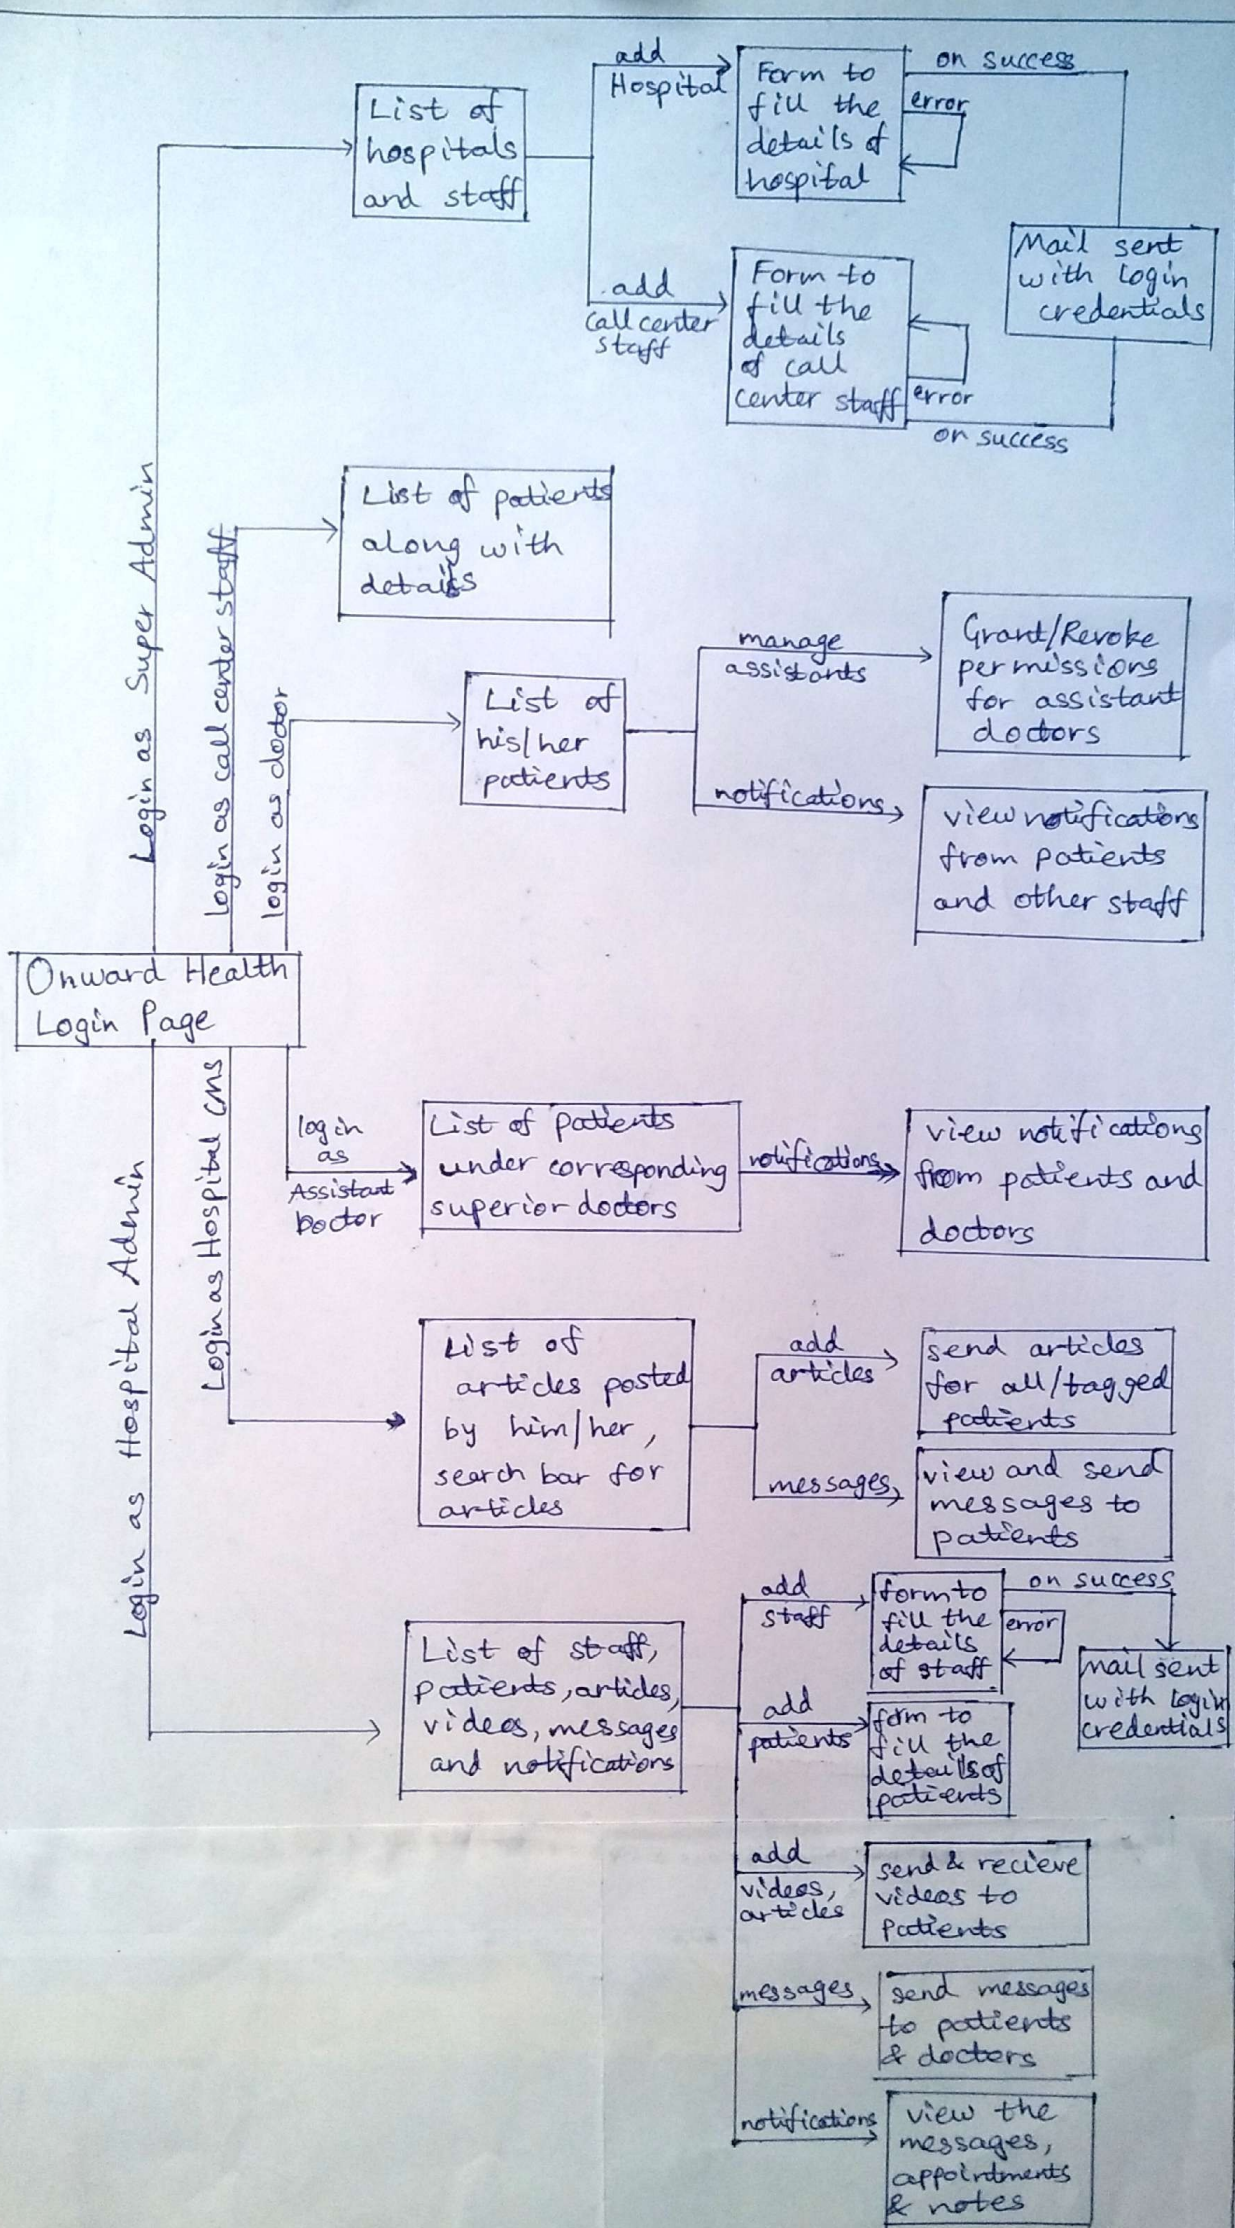 add
Hospital
Form to
fill the
details of
hospital
on success
error
List of
hospitals
and staff
Mail sent
with login
credentials
add
call center
staff
Form to
fill the
details
of call
center staff
error
on success
Login as Super Admin
List of patients
along with
details
login as call center staff
login as doctor
List of
his/her
patients
manage
assistants
Grant/Revoke
permissions
for assistant
doctors
notifications
view notifications
from patients
and other staff
Onward Health
Login Page
login
as
Assistant
Doctor
List of patients
under corresponding
superior doctors
notifications
view notifications
from patients and
doctors
Login as Hospital CMS
List of
articles posted
by him/her,
search bar for
articles
add
articles
send articles
for all/tagged
patients
messages
view and send
messages to
patients
Login as Hospital Admin
List of staff,
patients, articles,
videos, messages
and notifications
add
staff
form to
fill the
details
of staff
on success
error
mail sent
with login
credentials
add
patients
form to
fill the
details of
patients
add
videos,
articles
send & recieve
videos to
patients
messages
send messages
to patients
& doctors
notifications
view the
messages,
appointments
& notes